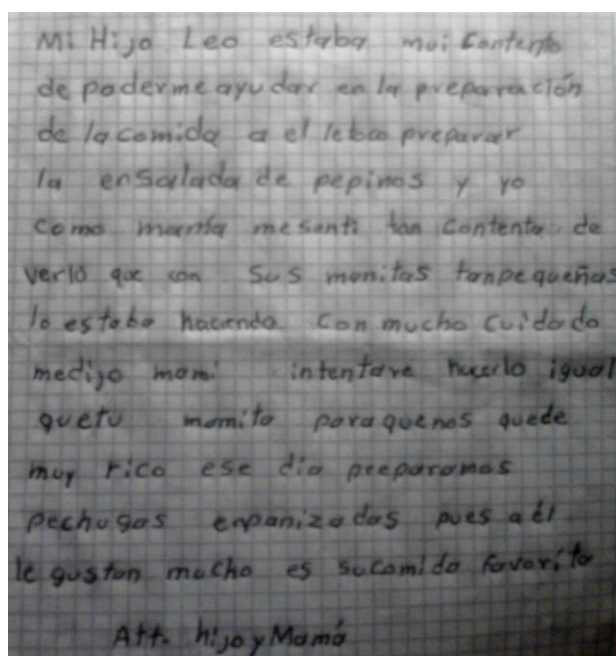 Mi Hijo Leo estaba mui contento
de poderme ayudar en la preparación
de la comida a el le toco preparar
la ensalada de pepinos y yo
como mamá me senti tan contenta de
verlo que con sus manitas tan pequeñas
lo estaba haciendo con mucho cuidado
me dijo mami intentare hacerlo igual
que tu mamita para que nos quede
muy rico ese dia preparamos
pechugas enpanizadas pues a él
le gustan mucho es su comida favorita
Att. hijo y Mamá